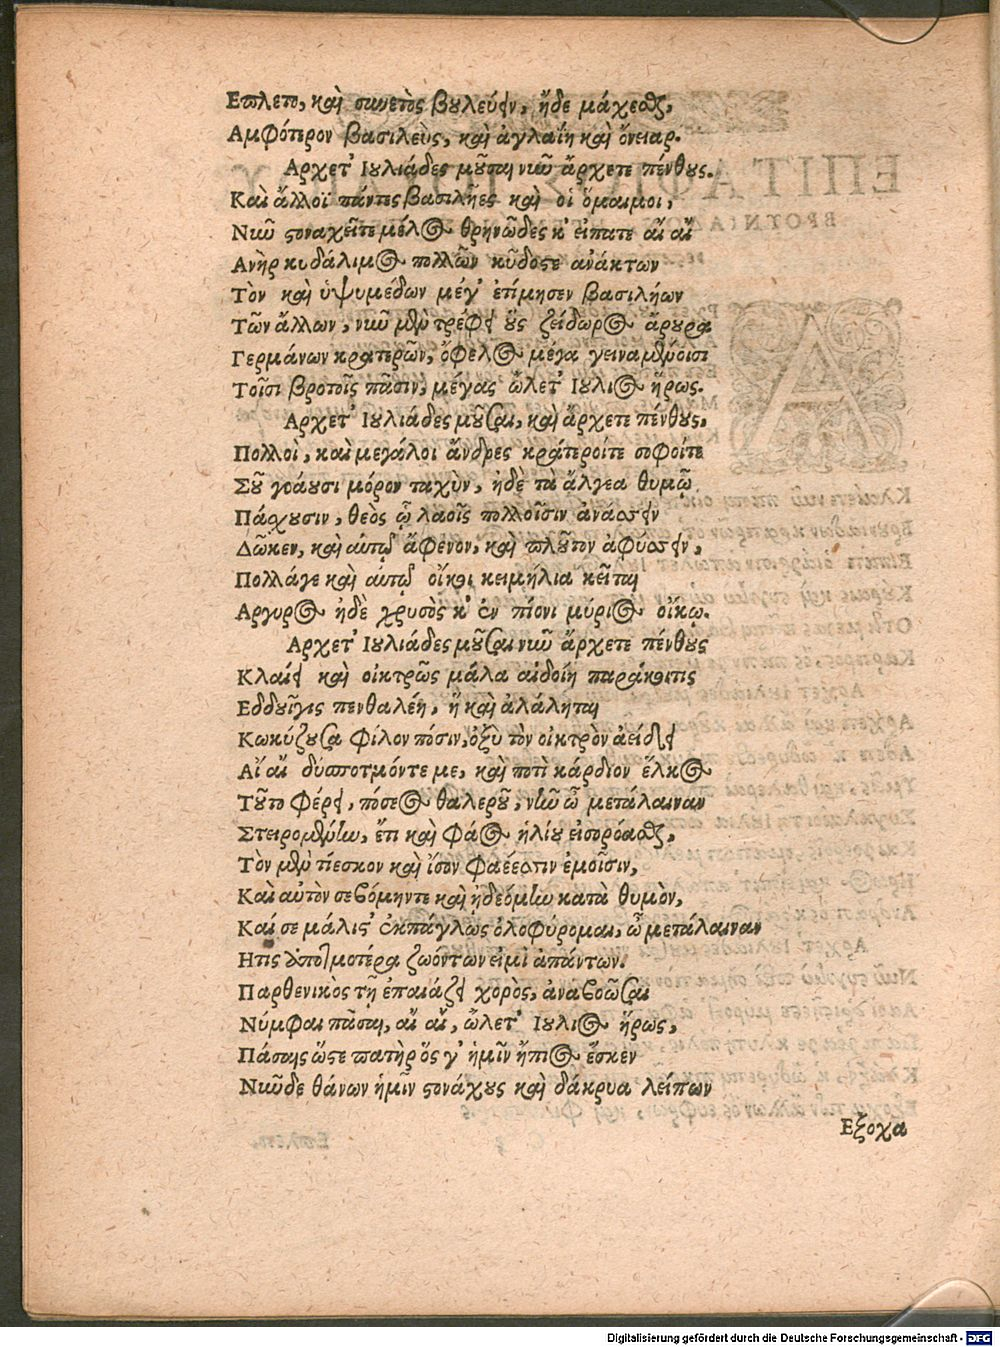 Επλετο, καὶ συνετὸς βουλεύειν, ἤδε μάχεσθαι,
Αμφότερον βασιλεὺς, καὶ ἀγλαΐη καὶ ὄνειαρ.
Αρχετ' Ιουλιάδες μοῦσαι νῦν ἄρχετε πένθους.
Καὶ ἄλλοϊ πάντες βασιλῆες καὶ οἱ ὅμαιμοι,
Νῦν στοναχεῖτε μέλος θρηνῶδες κ' εἴπατε αἴ αἴ
Ανὴρ κυδάλιμος πολλῶν κῦδοστε ἀνάκτων
Τὸν καὶ ὑψυμέδων μέγ' ἐτίμησεν βασιλήων
Τῶν ἄλλων, νῦν μὲν τρέφει οὓς ζείδωρος ἄρουρα
Γερμάνων κρατερῶν, ὄφελος μέγα γειναμένοισι
Τοῖσι βροτοῖς πᾶσιν, μέγας ὤλετ' Ιουλιος ἥρως.
Αρχετ' Ιουλιάδες μοῦσαι, καὶ ἄρχετε πένθους,
Πολλοὶ, καὶ μεγάλοι ἄνδρες κράτεροίτε σοφοίτε
Σοῦ γοάουσι μόρον ταχὺν, ἠδὲ τὰ ἄλγεα θυμῷ
Πάσχουσιν, θεὸς ᾧ λαοῖς πολλοῖσιν ἀνάσσειν
Δῶκεν, καὶ αὐτῷ ἄφενον, καὶ πλοῦτον ἀφύσσειν,
Πολλάγε καὶ αὐτῷ οἴκοθι κειμήλια κεῖται
Αργυρος ἠδὲ χρυσὸς κ' ἐν πίονι μύριος οἴκῳ.
Αρχετ' Ιουλιάδες μοῦσαι νῦν ἄρχετε πένθους
Κλαίει καὶ οἰκτρῶς μάλα αἰδοίη παράκοιτις
Εδδουῖγις πενθαλέη, ἣ καὶ ἀλάληται
Κωκύζουσα φίλον πόσιν, ὀξὺ τὸν οἰκτρὸν ἀείδει
Αἴ αἴ δύσποτμόντε με, καὶ ποτὶ κάρδιον ἕλκος
Τοῦτο φέρει, πόσεος θαλεροῦ, νῦν ὦ μετάλαιναν
Στειρομένην, ἔτι καὶ φάος ἡλίου εἰσορόασθαι,
Τὸν μὲν τίεσκον καὶ ἴσον φαέεσσιν ἐμοῖσιν,
Καὶ αὐτὸν σεβόμηντε καὶ ᾐδεόμην κατὰ θυμὸν,
Καί σε μάλιστ' ἐκπάγλως ὀλοφύρομαι, ὦ μετάλαιναν
Ητις ἀποτμοτέρα ζωόντων εἰμὶ ἁπάντων.
Παρθενικὸς τῇ ἐπαιάζει χορὸς, ἀναβοῶσαι
Νύμφαι πᾶσαι, αἴ αἴ, ὤλετ' Ιουλιος ἥρως,
Πάσαις ὥστε πατὴρ ὅς γ' ἡμῖν ἤπιος ἔσκεν
Νῦνδε θάνων ἡμῖν στονάχους καὶ δάκρυα λείπων
Εξοχα
Digitalisierung gefördert durch die Deutsche Forschungsgemeinschaft - DFG